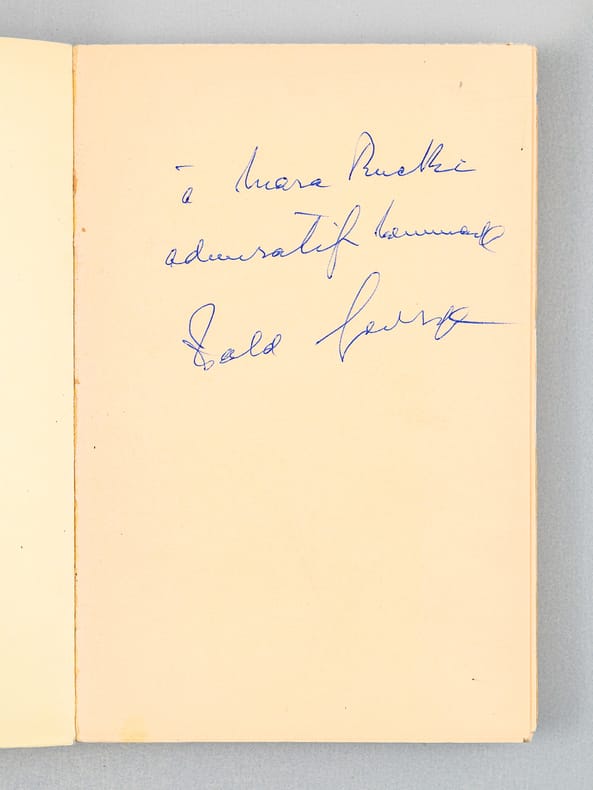 à Mara Rucki
admiratif hommage
George